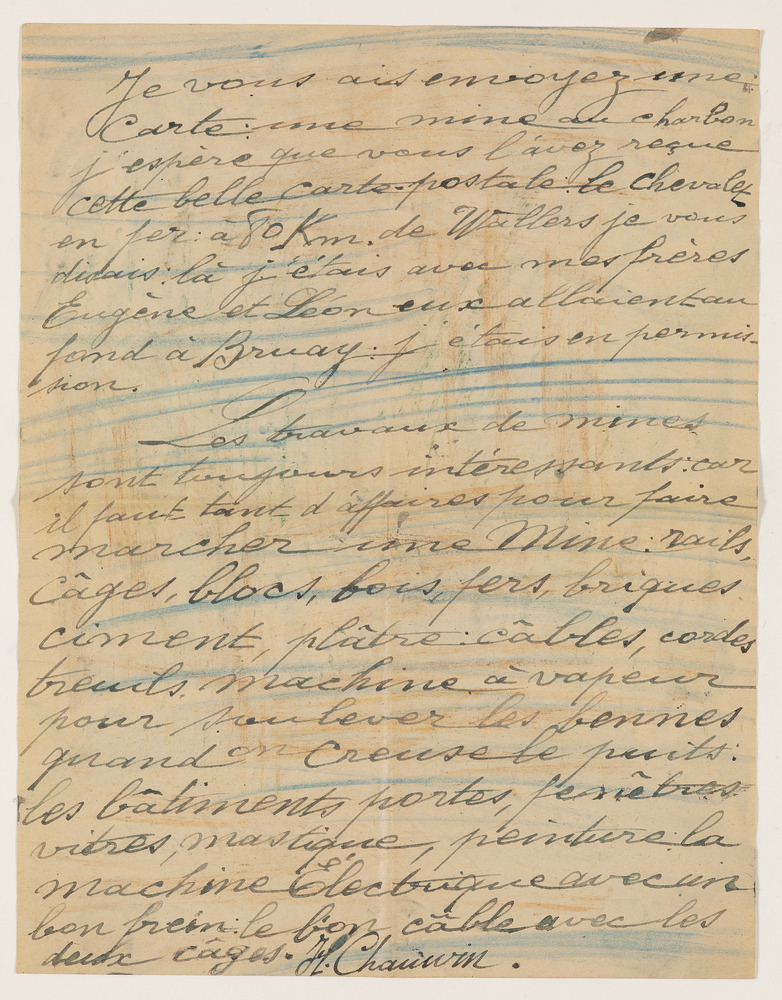 Je vous ais envoyez une
Carte: une mine au charbon
j'espère que vous l'àvez reçue
cette belle carte-postale. le chevalez
en fer: à 80 Km. de Wallers je vous
disais: là j'étais avec mes frères
Eugène et Léon eux allaient au
fond à Bruay: j'étais en permis-
sion.
Les travaux de mines
sont toujours intéressants: car
il faut tant d'affaires pour faire
marcher une Mine: rails,
câges, blocs, bois, fers, briques
ciment, plâtre: câbles, cordes
treuils, machine à vapeur
pour soulever les bennes
quand on creuse le puits:
les bâtiments portes, fenêtres
vitres, mastique, peinture: la
machine Électrique avec un
bon frein: le bon câble avec les
deux câges. H. Chauwin.